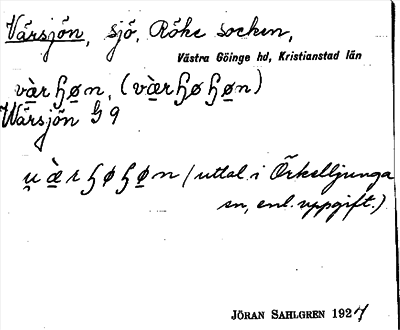 Värsjön, sjö, Röke socken,
Västra Göinge hd, Kristianstad län
vàrɧøn, (vàrɧøɧøn)
Wärsjön G 9
u̯æ̀rɧøɧøn (uttal i Örkelljunga
sn, enl. uppgift.)
JÖRAN SAHLGREN 1924